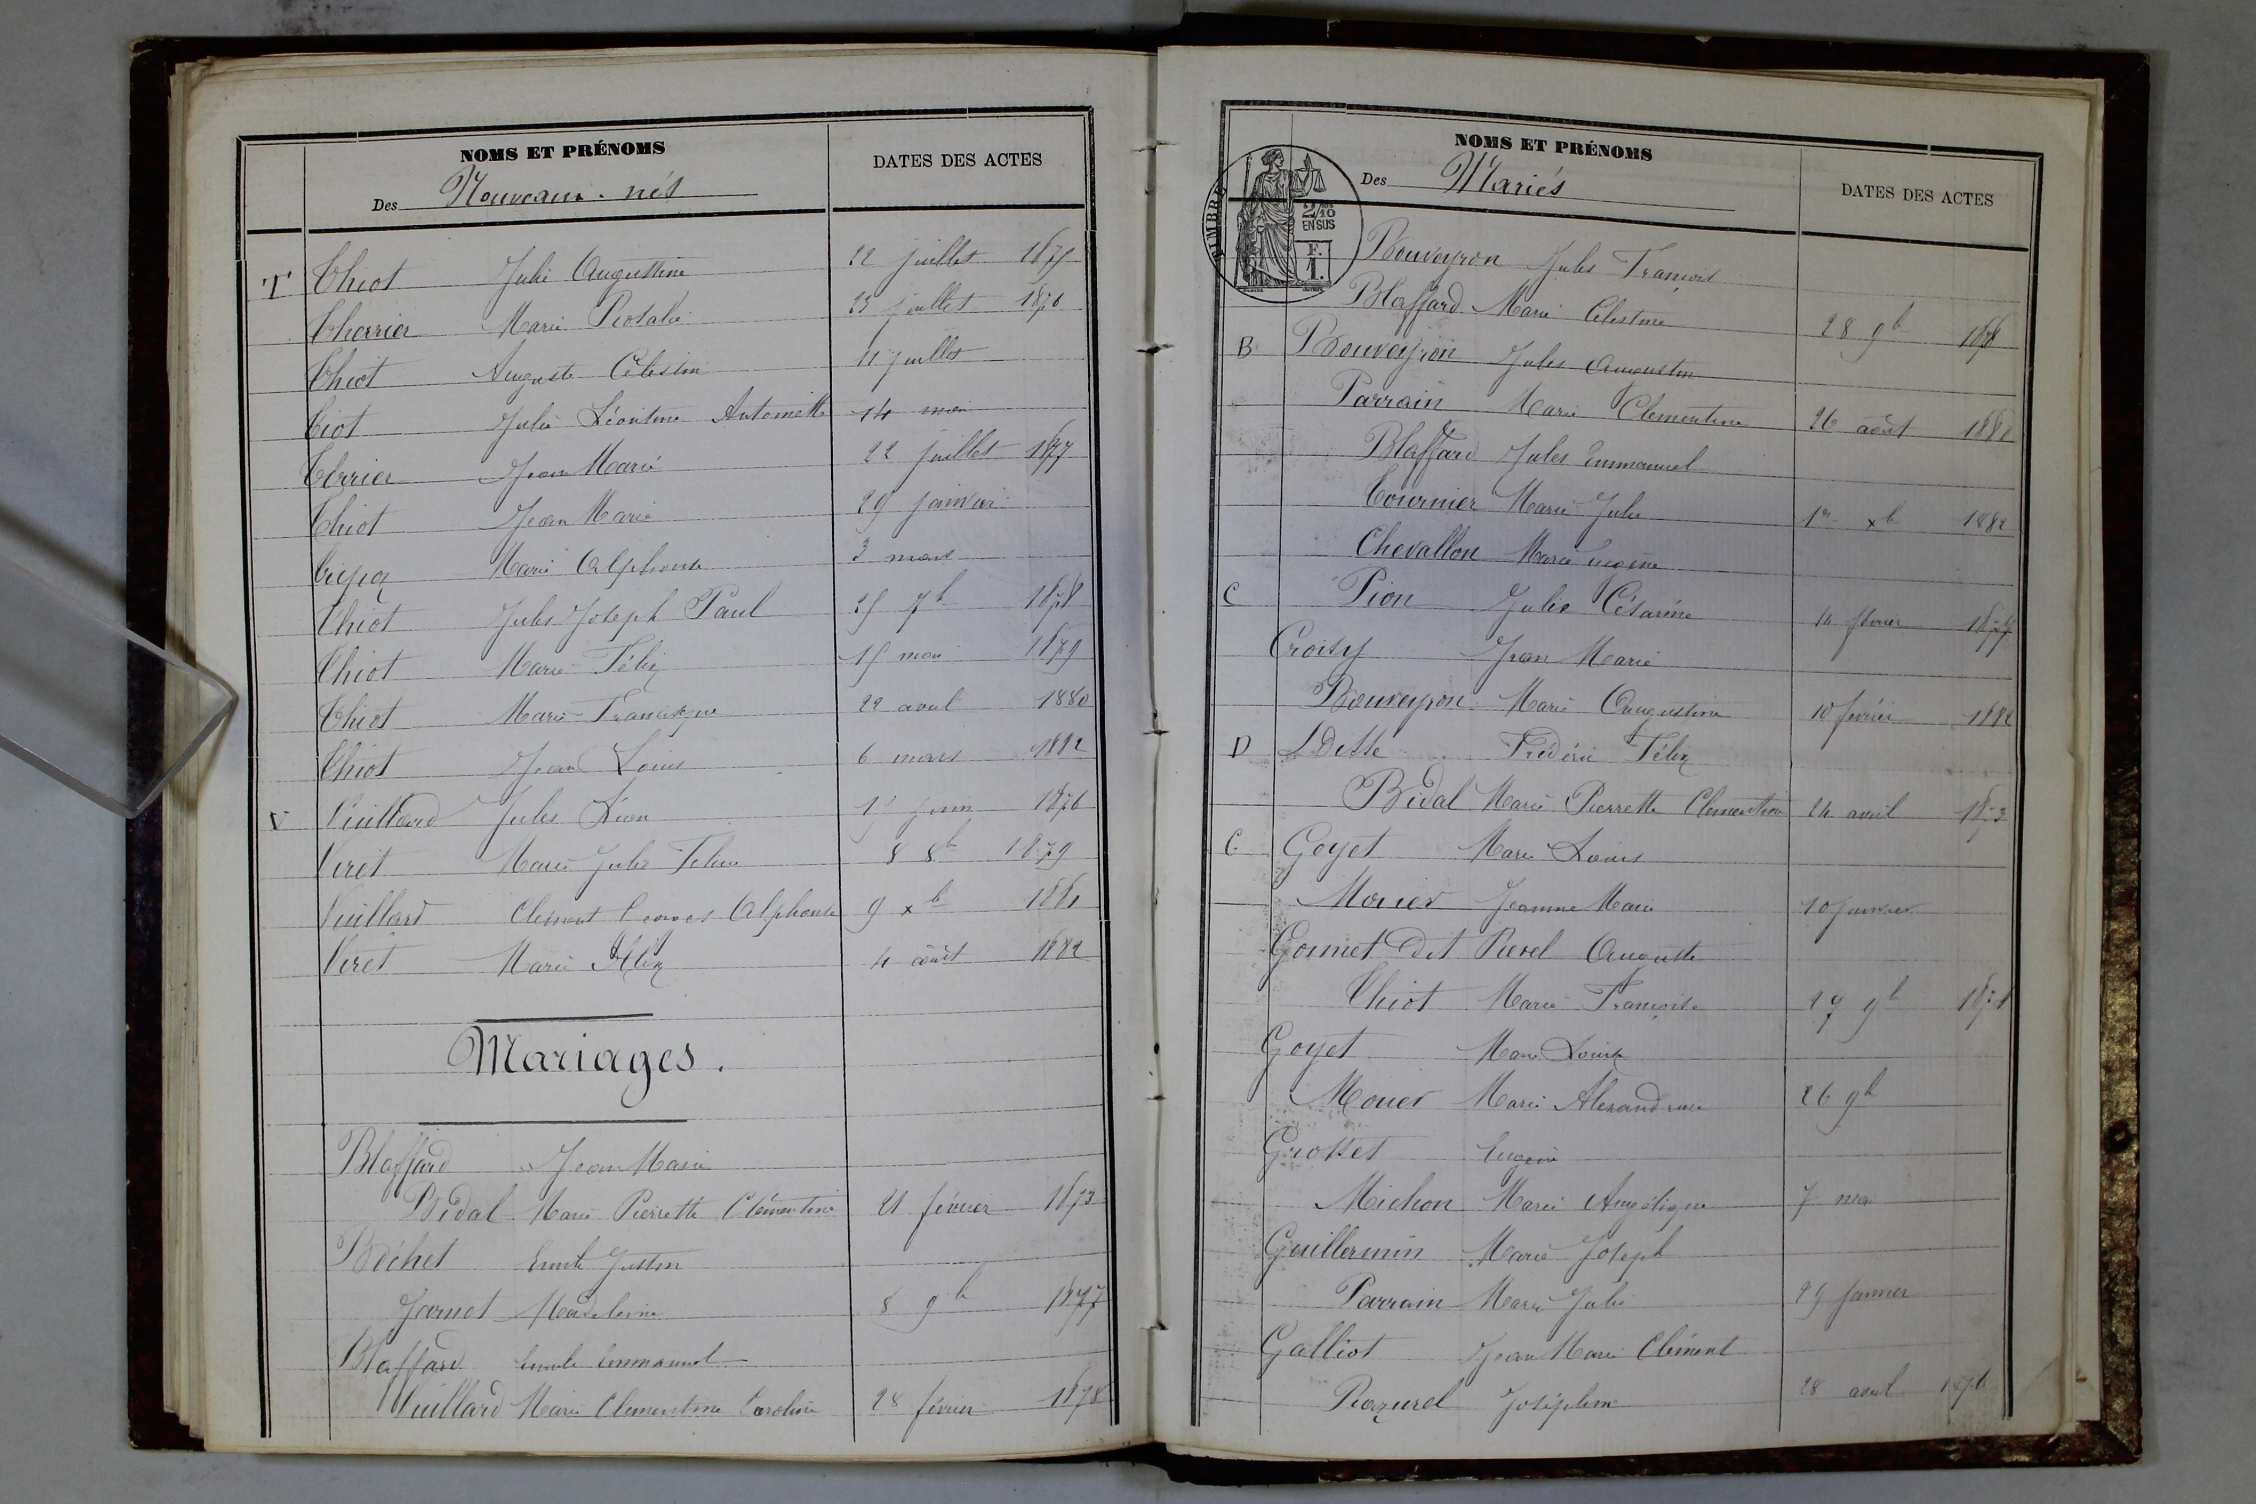 NOMS ET PRÉNOMS
DATES DES ACTES
Des Nouveaux-nés
T Thiot Julie Augustine 22 juillet 1875
Therrier Marie 23 juillet 1876
Thiot Auguste Célestin 11 juillet
Tiot Julie Léontine Antoinette 14 mai
Terrier Jean Marie 22 juillet 1877
Thiot Jean Marie 29 janvier
Marie Alphonse 3 mars
Thiot Jules Joseph Paul 25 7b 1878
Thiot Marie Félix 15 mai 1879
Thiot Marie Francisque 22 avril 1880
Thiot Jean Louis 6 mars 1882
V Vuillard Jules Léon juin 1876
Viret Marie Jules 8 8b 1879
Vuillard Clément Alphonse 9 xb 1881
Viret Marie Félix 4 août 1882
Mariages.
Blaffard Jean Marie
Bidal Marie Pierrette Clémentine 21 février 1873
Béchet Emile Justin
Jarnet Madeleine 8 9b 1877
Blaffard Emile Emmanuel
Vuillard Marie Clementine Caroline 28 février 1878
TIMBRE
2/10
EN SUS
F.
1.
NOMS ET PRÉNOMS
DATES DES ACTES
Des Mariés
Bouveyron Jules François
Blaffard Marie Célestine 28 9b 1878
B Bouveyron Jules Augustin
Parrain Marie Clementine 26 août 1880
Blaffard Jules Emmanuel
Tournier Marie Julie 1er xb 1882
Chevallon Marie Eugène
C Pion Julie Césarine 14 février
Croisy Jean Marie
Bouveyron Marie Augustine 10 février 1882
D Frédéric Félix
Bidal Marie Pierrette Clementine 24 avril 1873
G Goyet Marie Louis
Monier Jeanne Marie 10 janvier
Gonnet dit Revel Auguste
Thiot Marie Françoise 9b
Goyet Marie Louis
Monier Marie Alexandrine 26 9b
Grosset Eugène
Michon Marie Angélique 7 mai
Guillermin Marie Joseph
Parrain Marie Julie 29 janvier
Galliot Jean Marie Clément
Razurel Joséphine 28 avril 1876